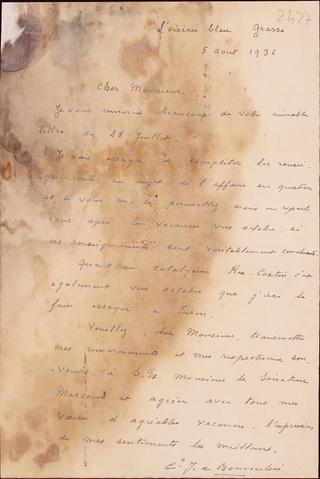 2427
L'oiseau bleu Grasse
5 aout 1936
Cher Monsieur.
Je vous remercie beaucoup de votre aimable
lettre du 28 Juillet.
Je vais essayer de compléter les rensei-
gnements au sujet de l'affaire en question
et, si vous me le permettez, nous en reparle-
rons après les vacances vers octobre, si
ces renseignements sont véritablement concluants.
Quant au catalyseur c'est
également vers octobre que j'irai le
faire essayer à Turin.
Veuillez, cher Monsieur, transmettre
mes remerciements et mes respectueux sou-
-venirs à S.Ex. Monsieur le Sénateur
Marconi et agréer avec tous mes
vœux d'agréables vacances, l'expression
de mes sentiments les meilleurs.
J. de Bonvouloir